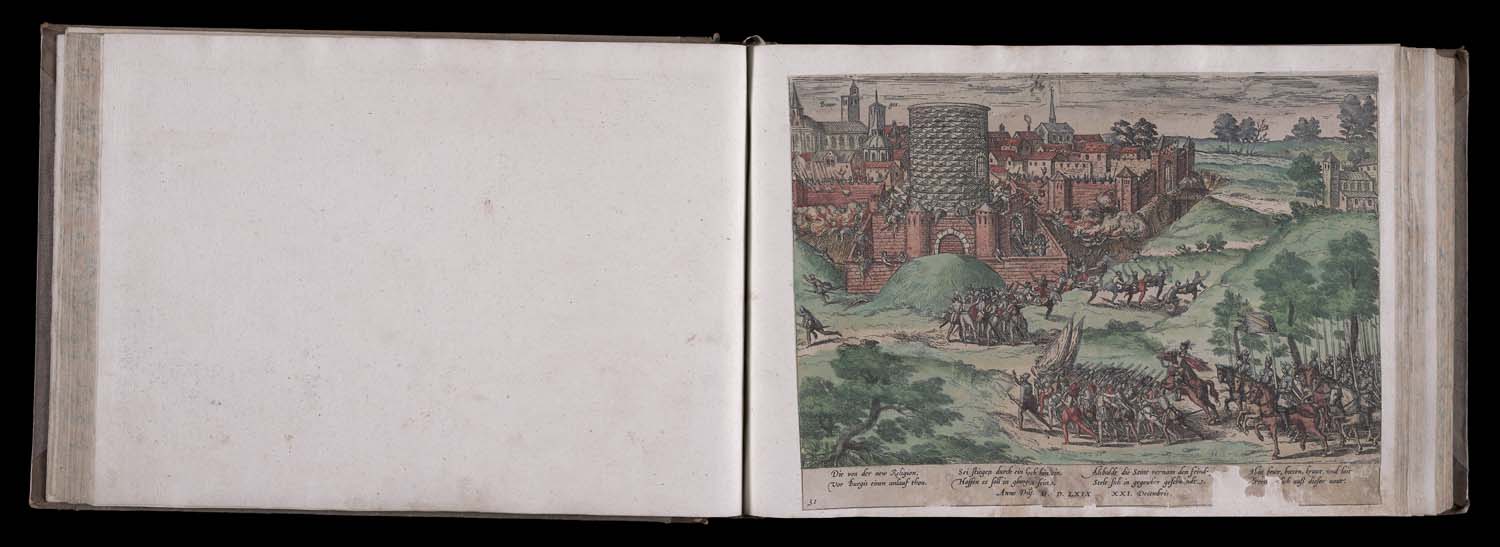 Bour ges
Die von der new Religion,
Vor Burgis einen anlauf thon.
Sei stiegen durch ein loch hin ein,
Hoffen es soll in
Alsbalde die Statt vernam den feind
Stelt sich in gegenwer
büxen, kraut, und lot
auß dieser noot.
Anno Dñj. M. D. LXIX XXI. Decembris.
31